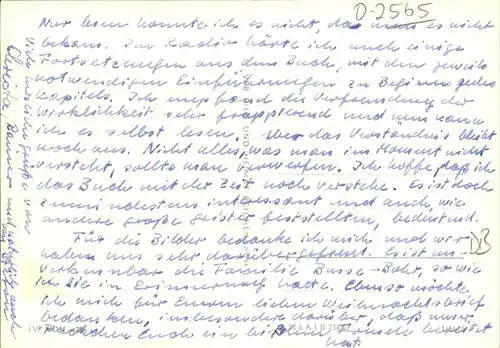 D-2565
Nur lesen konnte ich es nicht, da man es nicht
bekam. Im Radio hörte ich auch einige
Fortsetzungen aus dem Buch, mit den jeweils
notwendigen Einführungen zu Beginn jedes
Kapitels. Ich empfand die Verfremdung der
Wirklichkeit sehr frappierend und nun kann
ich es selbst lesen. Das Verständnis bleibt
noch aus. Nicht alles, was man im Moment nicht
versteht, sollte man verwerfen. Ich hoffe, daß ich
das Buch mit der Zeit noch verstehe. Es ist doch
zumindestens interessant und auch, wie
andere große Geister feststellten, bedeutend.
Für die Bilder bedanke ich mich und wir
haben uns sehr darüber gefreut. Es ist un-
verkennbar die Familie Busse-Bohr, so wie
ich sie in Erinnerung hatte. Ebenso möchte
ich mich für Euren lieben Weihnachtsbrief
bedanken, insbesondere darüber, daß unser
Päckchen Euch ein bißchen Freude bereitet
hat.
Viele herzliche Grüße von
DB